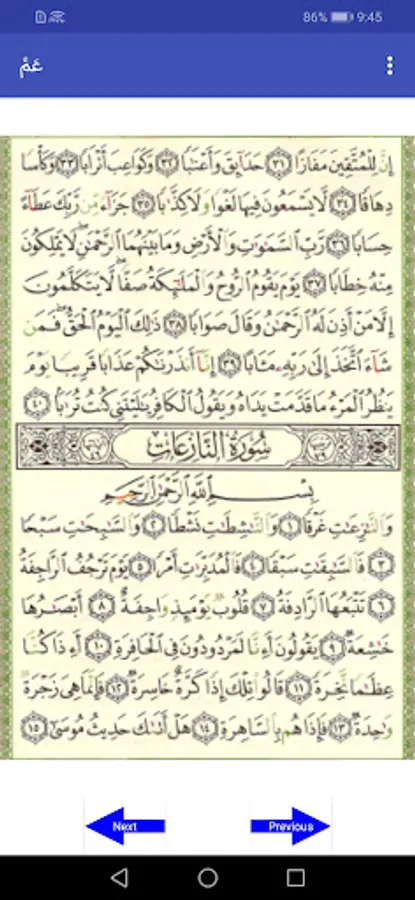 86% 9:45
عَمَّ
إِنَّ لِلْمُتَّقِينَ مَفَازًا ٣١ حَدَآئِقَ وَأَعْنَٰبًا ٣٢ وَكَوَاعِبَ أَتْرَابًا ٣٣ وَكَأْسًا
دِهَاقًا ٣٤ لَّا يَسْمَعُونَ فِيهَا لَغْوًا وَلَا كِذَّٰبًا ٣٥ جَزَآءً مِّن رَّبِّكَ عَطَآءً
حِسَابًا ٣٦ رَّبِّ ٱلسَّمَٰوَٰتِ وَٱلْأَرْضِ وَمَا بَيْنَهُمَا ٱلرَّحْمَٰنِ لَا يَمْلِكُونَ
مِنْهُ خِطَابًا ٣٧ يَوْمَ يَقُومُ ٱلرُّوحُ وَٱلْمَلَٰٓئِكَةُ صَفًّا لَّا يَتَكَلَّمُونَ
إِلَّا مَنْ أَذِنَ لَهُ ٱلرَّحْمَٰنُ وَقَالَ صَوَابًا ٣٨ ذَٰلِكَ ٱلْيَوْمُ ٱلْحَقُّ فَمَن
شَآءَ ٱتَّخَذَ إِلَىٰ رَبِّهِۦ مَـَٔابًا ٣٩ إِنَّآ أَنذَرْنَٰكُمْ عَذَابًا قَرِيبًا يَوْمَ
يَنظُرُ ٱلْمَرْءُ مَا قَدَّمَتْ يَدَاهُ وَيَقُولُ ٱلْكَافِرُ يَٰلَيْتَنِى كُنتُ تُرَٰبًۢا ٤٠
سُورَةُ النَّازِعَاتِ
بِسْمِ ٱللَّهِ ٱلرَّحْمَٰنِ ٱلرَّحِيمِ
وَٱلنَّٰزِعَٰتِ غَرْقًا ١ وَٱلنَّٰشِطَٰتِ نَشْطًا ٢ وَٱلسَّٰبِحَٰتِ سَبْحًا
٣ فَٱلسَّٰبِقَٰتِ سَبْقًا ٤ فَٱلْمُدَبِّرَٰتِ أَمْرًا ٥ يَوْمَ تَرْجُفُ ٱلرَّاجِفَةُ
٦ تَتْبَعُهَا ٱلرَّادِفَةُ ٧ قُلُوبٌ يَوْمَئِذٍ وَاجِفَةٌ ٨ أَبْصَٰرُهَا
خَٰشِعَةٌ ٩ يَقُولُونَ أَءِنَّا لَمَرْدُودُونَ فِى ٱلْحَافِرَةِ ١٠ أَءِذَا كُنَّا
عِظَٰمًا نَّخِرَةً ١١ قَالُوا۟ تِلْكَ إِذًا كَرَّةٌ خَاسِرَةٌ ١٢ فَإِنَّمَا هِىَ زَجْرَةٌ
وَٰحِدَةٌ ١٣ فَإِذَا هُم بِٱلسَّاهِرَةِ ١٤ هَلْ أَتَىٰكَ حَدِيثُ مُوسَىٰٓ ١٥
Next Previous